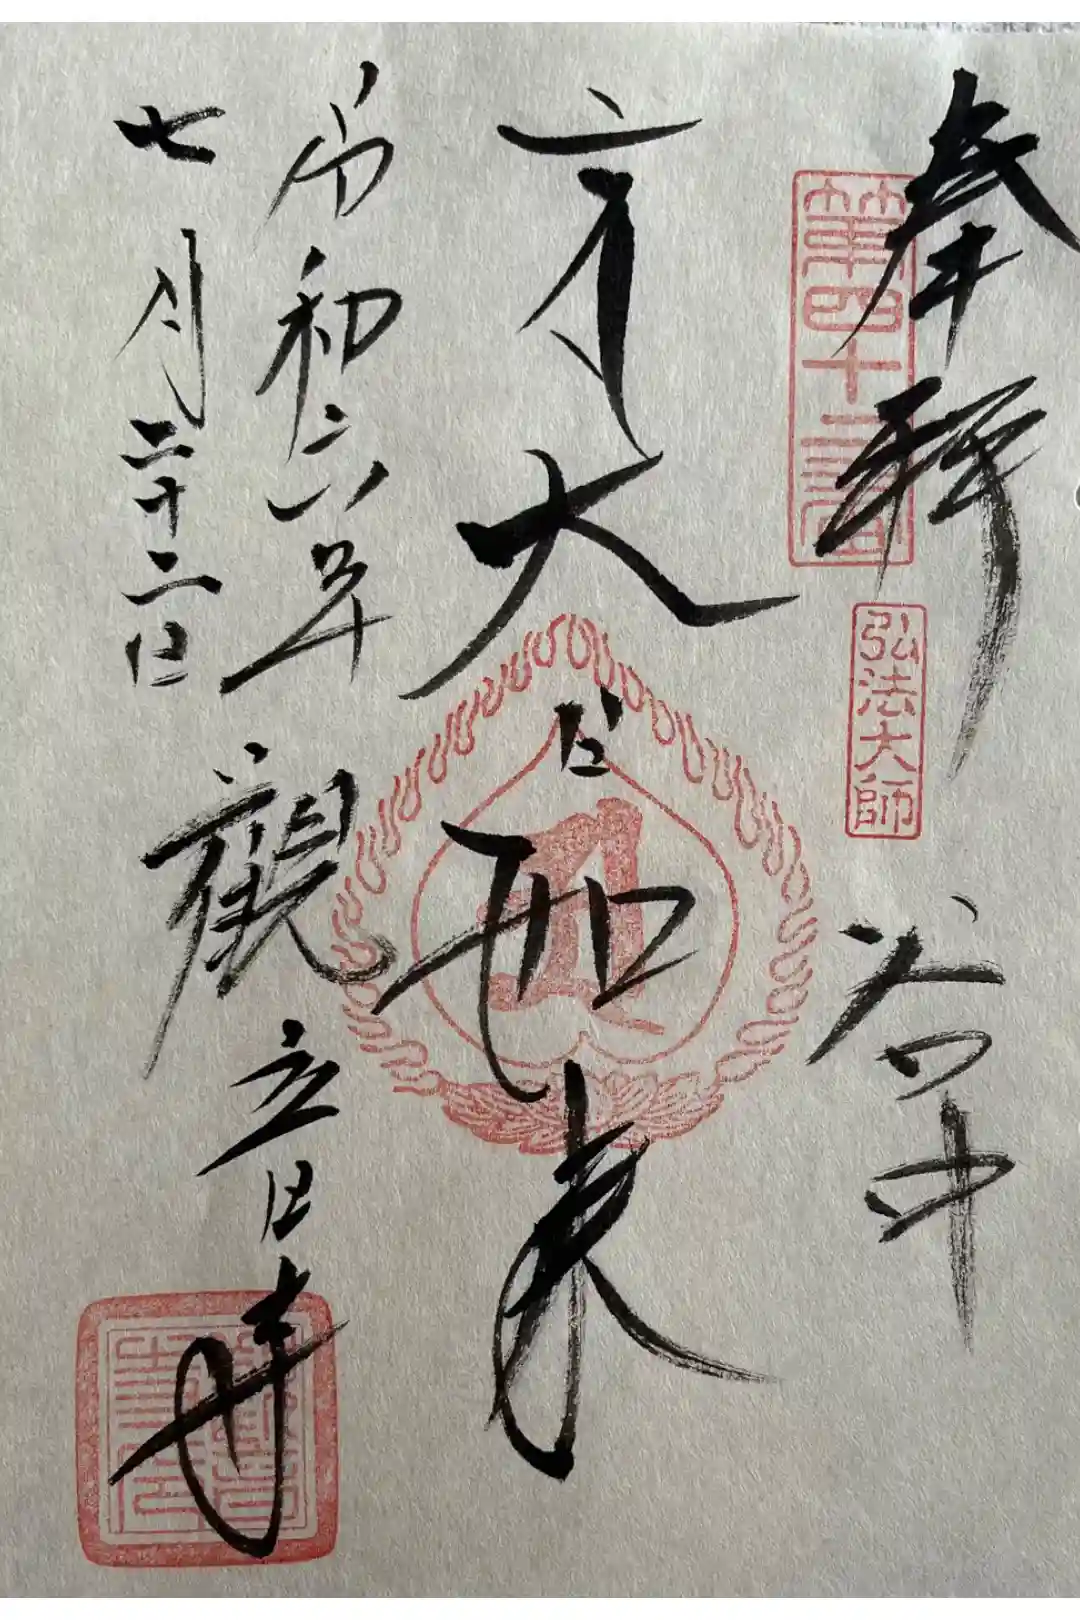 奉拝
第四十二番
弘法大師
谷中
大日如来
令和六年
七月二十二日
觀音寺